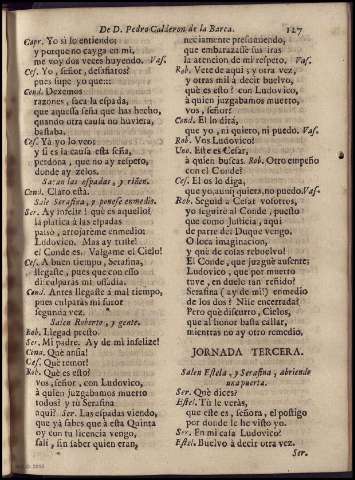 De D. Pedro Calderon de la Barca. 127
Capr. Yo si lo entiendo;
y porque no cayga en mi,
me voy dos veces huyendo. Vas.
Ces. Yo, señor, desafiaros?
pues supe yo que:::
Cond. Dexemos
razones, saca la espada,
que aquessa seña que has hecho,
quando otra causa no huviera,
bastaba.
Ces. Ya yo lo veo;
y si es la causa esta seña,
perdona, que no ay respeto,
donde ay zelos.
Sacan las espadas, y riñen.
Cond. Claro està.
Sale Serafina, y ponese enmedio.
Ser. Ay infelize! què es aquello?
la platica à las espadas
passò, arrojarème enmedio:
Ludovico. Mas ay triste!
el Conde es. Valgame el Cielo!
Ces. A buen tiempo, Serafina,
llegaste, pues que con esso
disculparàs mi ossadia.
Cond. Antes llegaste à mal tiempo,
pues culparàs mi furor
segunda vez.
Salen Roberto, y gente.
Rob. Llegad presto.
Ser. Mi padre. Ay de mi infelize!
Cond. Què ansia!
Ces. Què temor!
Rob. Què es esto?
vos, señor, con Ludovico,
à quien juzgabamos muerto
todos? y tù Serafina
aqui? Ser. Las espadas viendo,
que ya sabes que à esta Quinta
oy con tu licencia vengo,
salì, sin saber quien eran,
neciamente presumiendo,
que embarazasse sus iras
la atencion de mi respeto. Vas.
Rob. Vete de aqui; y otra vez,
y otras mil à decir buelvo,
què es esto? con Ludovico,
à quien juzgabamos muerto,
vos, señor?
Cond. El lo dirà,
que yo, ni quiero, ni puedo. Vas.
Rob. Vos Ludovico!
Uno. Este es Cesar,
à quien buscas. Rob. Otro empeño
con el Conde?
Ces. El os lo diga,
que yo, ni quiero, no puedo. Vas.
Rob. Seguid à Cesar vosotros,
yo seguirè al Conde, puesto
que como Justicia, aqui
de parte del Duque vengo.
O loca imaginacion,
y què de cosas rebuelvo!
El Conde, que juzguè ausente;
Ludovico, que por muerto
tuve, en duelo tan reñido?
Serafina (ay de mi!) enmedio
de los dos?
Pero què discurro, Cielos,
que al honor basta callar,
mientras no ay otro remedio.
JORNADA TERCERA.
Salen Estela, y Serafina, abriendo
una puerta.
Ser. Què dices?
Estel. Tù le veràs,
que este es, señora, el postigo
por donde le he visto yo.
Ser. En mi casa Ludovico?
Estel. Buelvo à decir otra vez.
Ser.